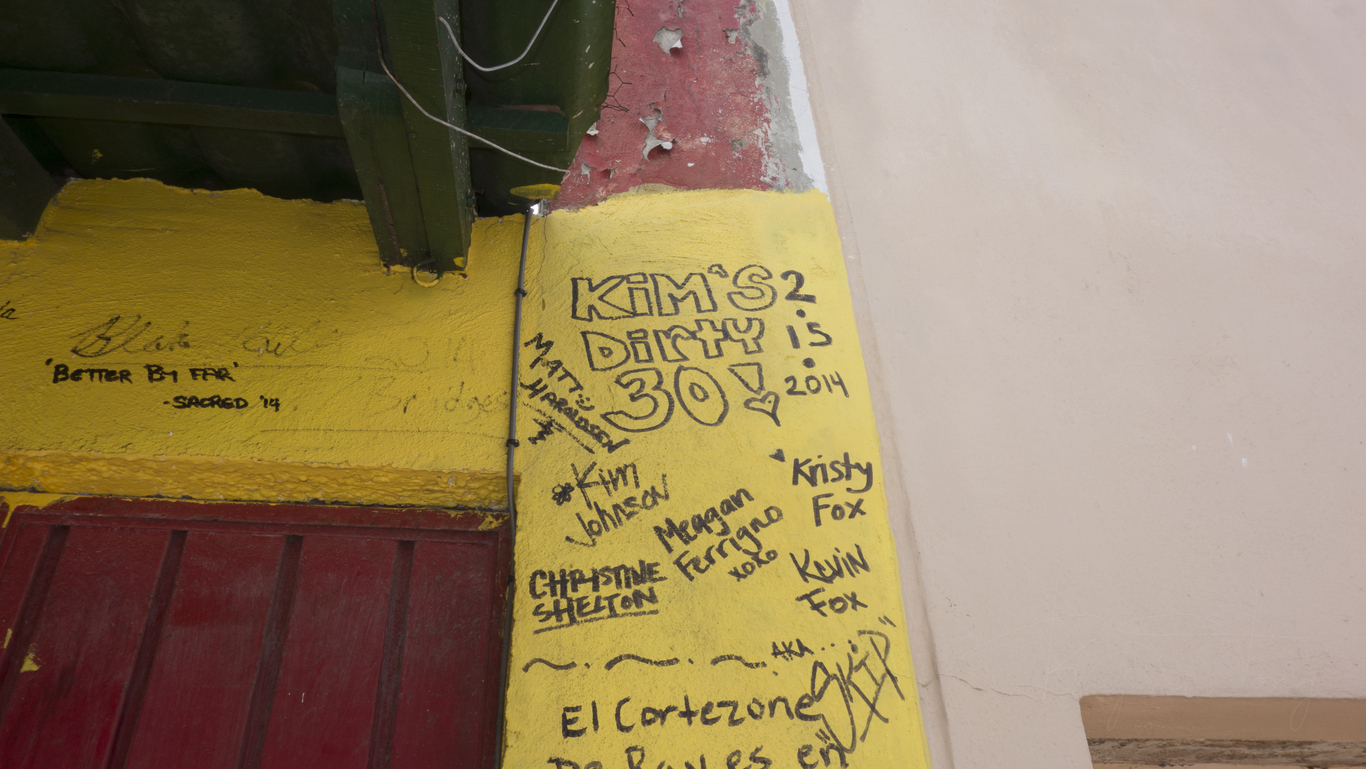 'BETTER BY FAR'
-SACRED '14
KiM'S
Dirty
30!
2.
15
•
2014
MATT
HAROLDSEN
Kim
Johnson
Meagan
Ferrigno
xoxo
Kristy
Fox
KEViN
Fox
CHRISTINE
SHELTON
AKA...
"SKIP"
El Cortezone